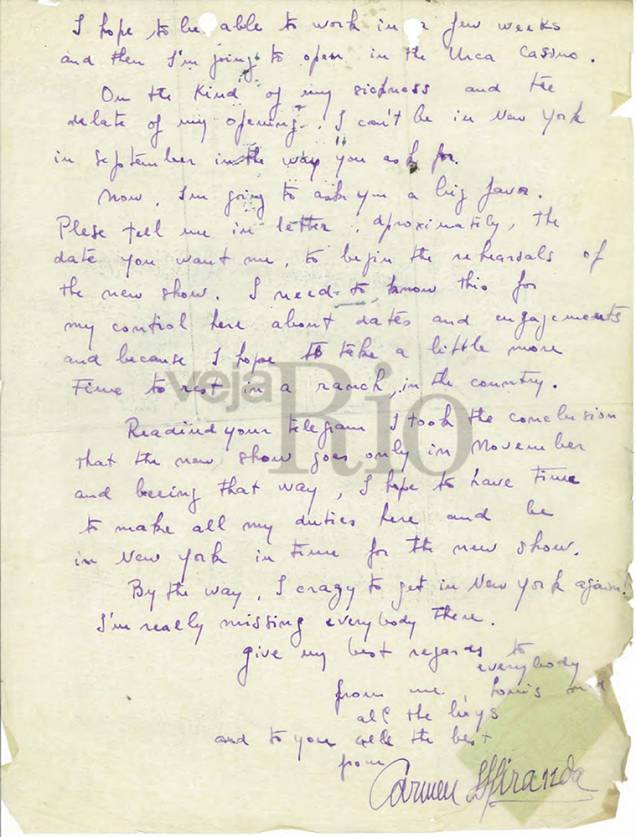 I hope to be able to work in a few weeks
and then I'm going to open in the Urca Cassino.
On the Kind of my sickness and the
delate of my opening, I can't be in New York
in September in the way you ask for.
Now, I'm going to ask you a big favor.
Plese tell me in letter, aproximately, the
date you want me, to begin the rehearsals of
the new show. I need to know this for
my control here about dates and engagements
and because I hope to take a little more
Time to rest in a ranch, in the country.
vejaRio
Readind your telegram I took the conclusion
that the new show goes only in November
and beeing that way, I hope to have time
to make all my duties here and be
in New York in time for the new show.
By the way, I crazy to get in New York again!
I'm really missing everybody there.
give my best regards to
everybody
from me,
all the boys
and to you all the best
from
Carmen Miranda